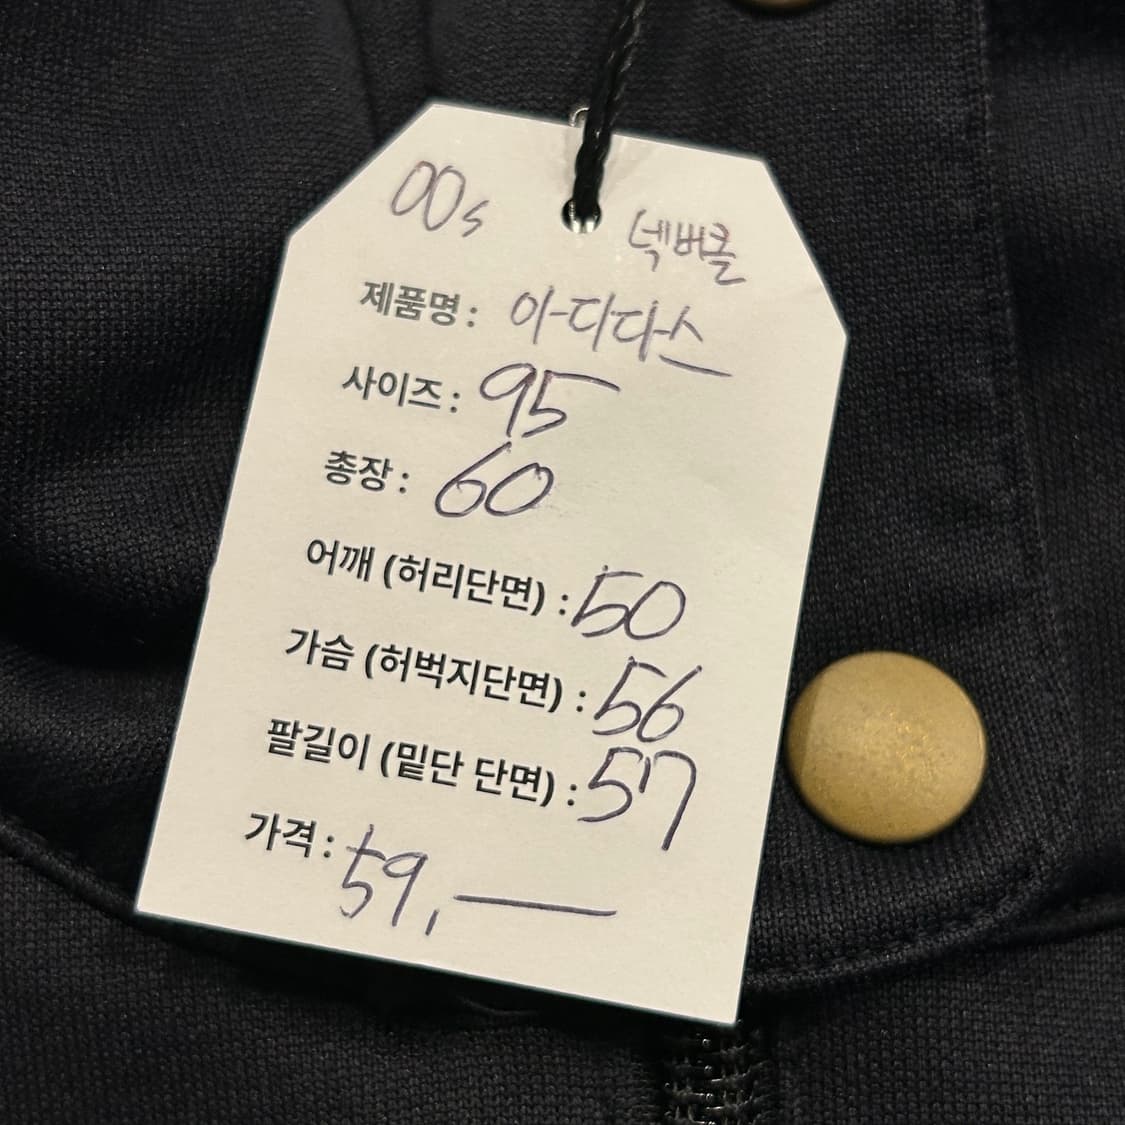 00s
넥버클
제품명 : 아디다스
사이즈 : 95
총장 : 60
어깨 (허리단면) : 50
가슴 (허벅지단면) : 56
팔길이 (밑단 단면) : 57
가격 : 59,―